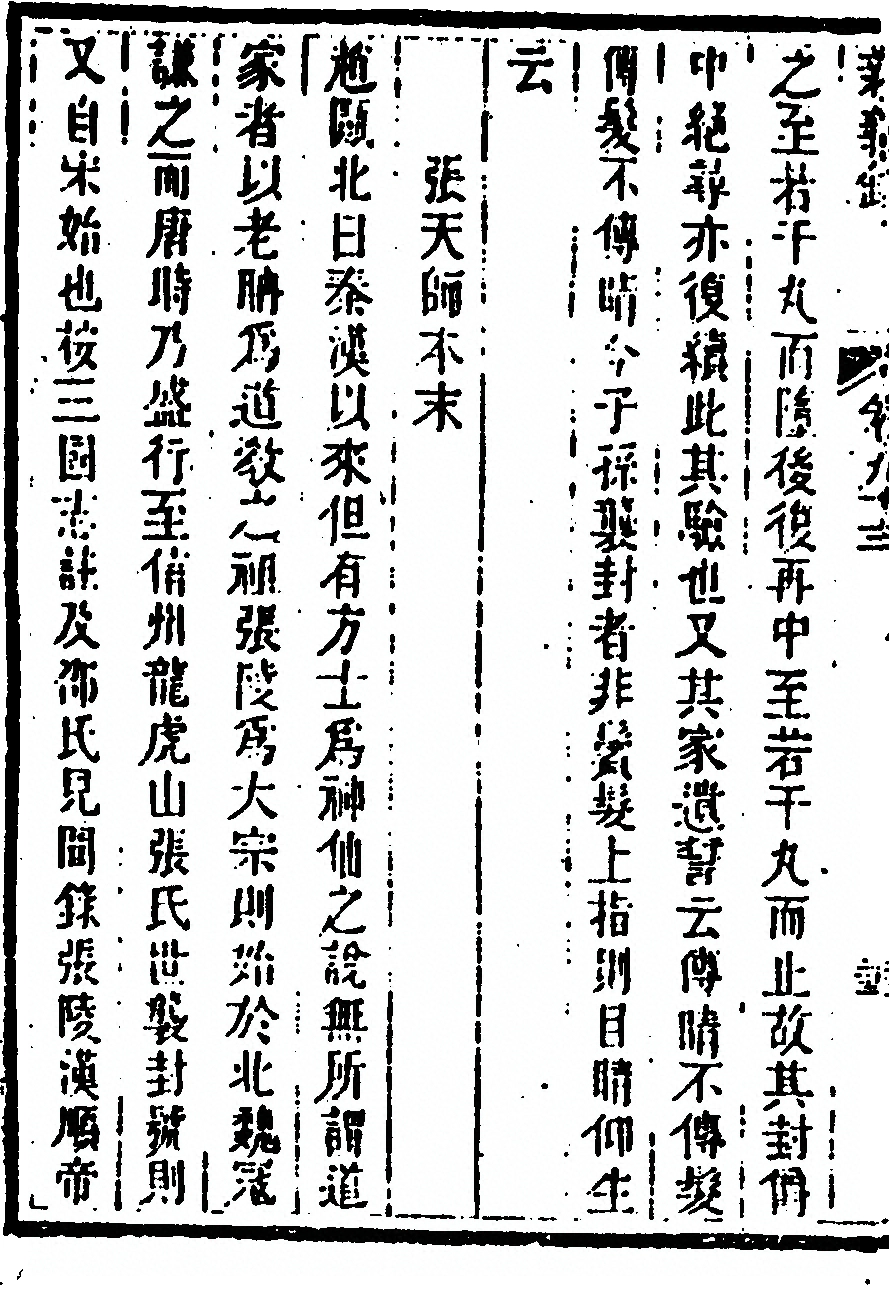 之至若干丸而墮後復再中至若干丸而止故其封爵
中絕尋亦復續此其驗也又其家遺誓云傳睛不傳髮
傳髮不傳睛今子孫襲封者非鬢髮上指則目睛仰生
云
張天師本末
趙甌北曰秦漢以來但有方士爲神仙之說無所謂道
家者以老聃爲道教之祖張陵爲大宗則始於北魏寇
謙之而唐時乃盛行至信州龍虎山張氏世襲封號則
又自宋始也按三國志註及邵氏見聞錄張陵漢順帝